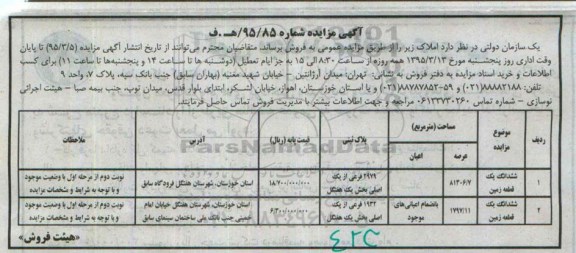 آگهی مزایده شماره ۹۵/۸۵/هـ.ف
یک سازمان دولتی در نظر دارد املاک زیر را از طریق مزایده عمومی به فروش برساند، متقاضیان محترم می‌توانند از تاریخ انتشار آگهی مزایده (۹۵/۳/۵) تا پایان
وقت اداری روز پنجشنبه مورخ ۱۳۹۵/۳/۱۳ همه روزه از ساعت ۸:۳۰ الی ۱۵ به جز ایام تعطیل (دوشنبه ها تا ساعت ۱۴ و پنجشنبه‌ها تا ساعت ۱۱) برای کسب
اطلاعات و خرید اسناد مزایده به دفتر فروش به نشانی: تهران: میدان آرژانتین - خیابان شهید مغنیه (بهاران سابق) جنب بانک سپه، پلاک ۷، واحد ۹
تلفن: ۸۸۸۸۲۱۸۸(۰۲۱) و ۵۹-۸۸۷۸۷۸۵۲(۰۲۱) و یا استان خوزستان، اهواز، خیابان لشکر، ابتدای بلوار قدس، میدان توپ، جنب بیمه صبا - هیئت اجرائی
نوسازی - شماره تماس ۰۶۱۳۳۷۳۰۲۶۰ مراجعه و جهت اطلاعات بیشتر با مدیریت فروش تماس حاصل فرمایند.
ردیف موضوع مزایده مساحت (مترمربع) پلاک ثبتی قیمت پایه (ریال) آدرس ملاحظات
عرصه اعیان
۱ ششدانگ یک قطعه زمین ۸۱۳۰۶/۷ ۲۹۷۹ فرعی از یک اصلی بخش یک هفتگل ۱۸/۷۰۰/۰۰۰/۰۰۰ استان خوزستان، شهرستان هفتگل فرودگاه سابق نوبت دوم از مرحله اول با وضعیت موجود و با توجه به شرایط و مشخصات مزایده
۲ ششدانگ یک قطعه زمین ۱۷۹۷/۱۱ بانضمام اعیانی‌های موجود ۱۹۳۲ فرعی از یک اصلی بخش یک هفتگل ۶/۳۰۰/۰۰۰/۰۰۰ استان خوزستان، شهرستان هفتگل خیابان امام خمینی جنب بانک ملی ساختمان سینمای سابق نوبت دوم از مرحله اول با وضعیت موجود و با توجه به شرایط و مشخصات مزایده
«هیئت فروش»
ParsNamadData